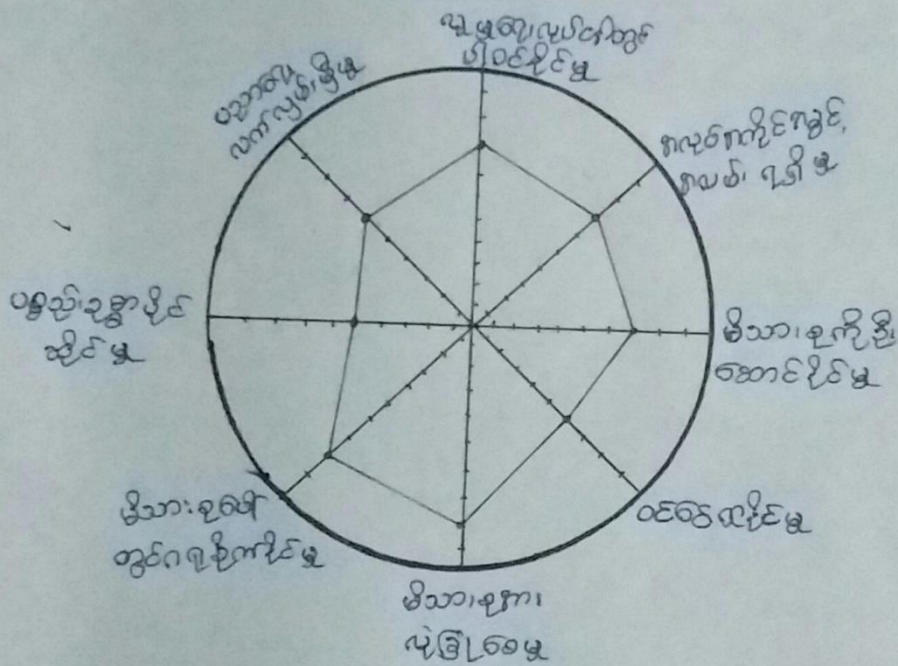 လူမှုရေးလုပ်ငန်းတွင်
ပါဝင်နိုင်မှု
အလုပ်အကိုင်အခွင့်
အလမ်း ရရှိမှု
မိသားစုကို ဦး
ဆောင်နိုင်မှု
ဝင်ငွေရနိုင်မှု
မိသားစုအား
လုံခြုံစေမှု
မိသားစုပေါ်
တွင်ဂရုစိုက်နိုင်မှု
ပစ္စည်းဥစ္စာပိုင်
ဆိုင်မှု
ပညာရေး
လက်လှမ်းမှီမှု